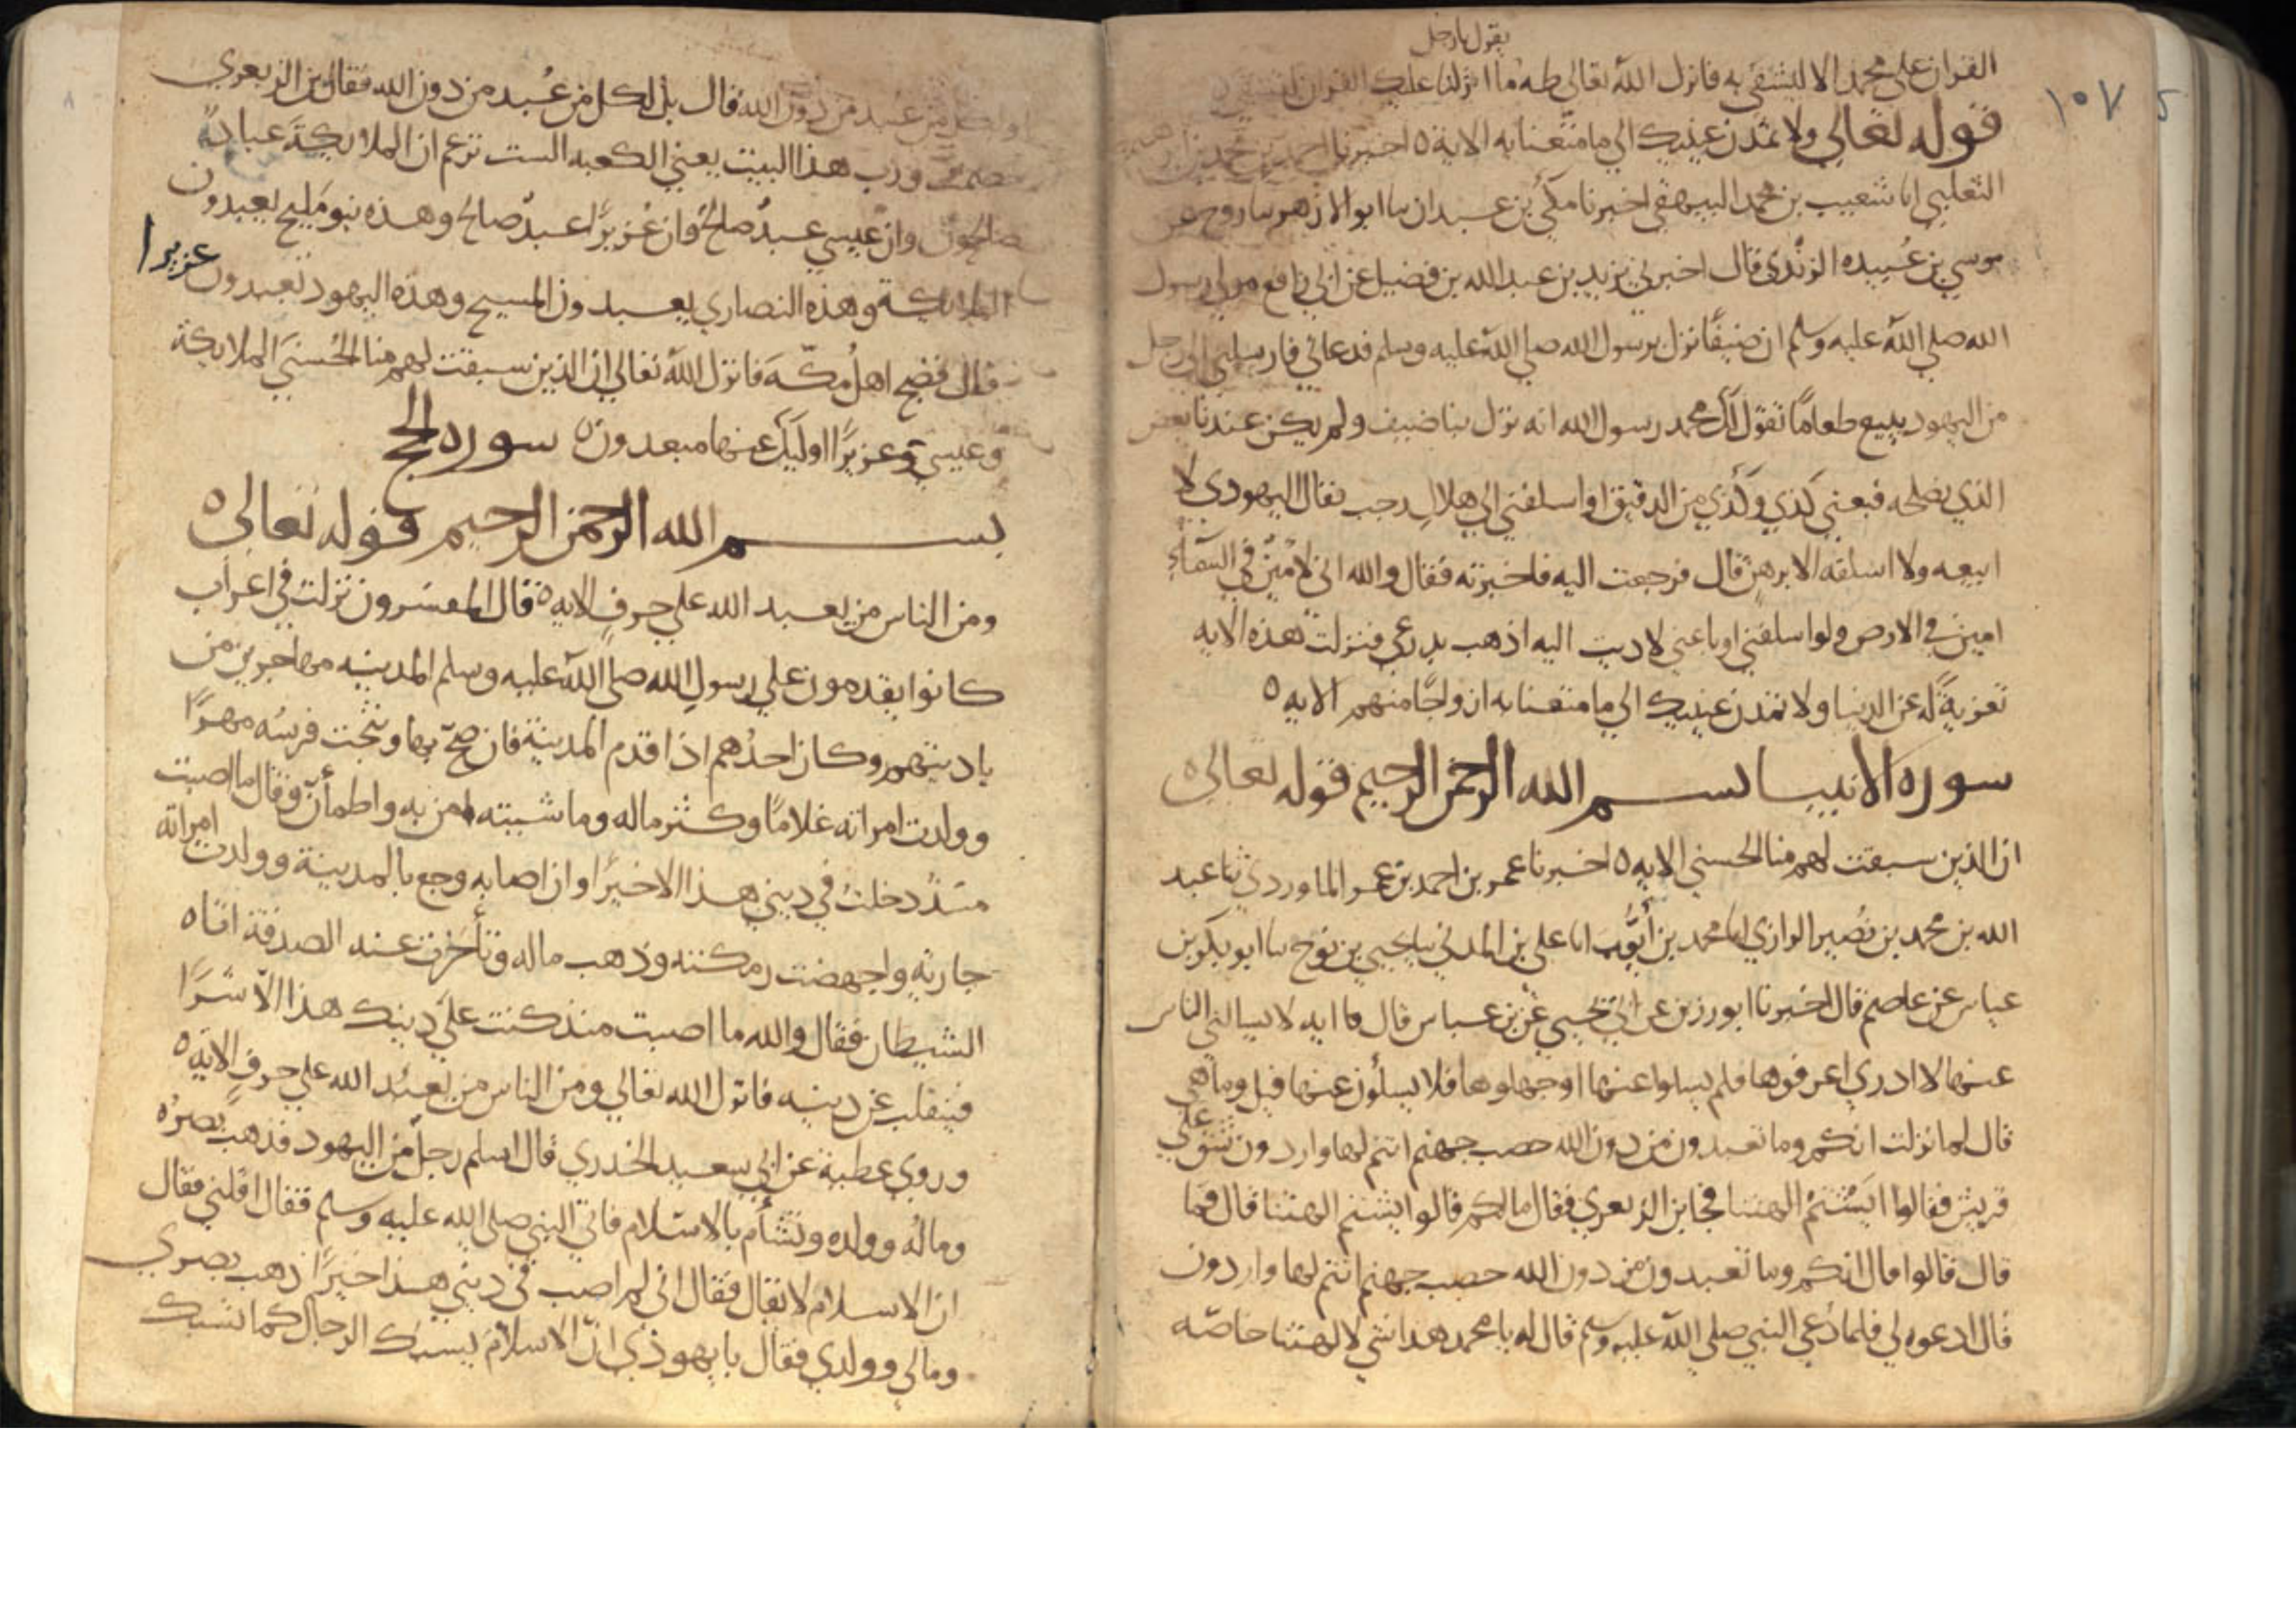 ١٠٧
يقول يا رجل
القران علي محمد الا ليشقي به فانزل الله تعالي طه ما انزلنا عليك القران لتشقي ٥
قوله تعالي ولا تمدن عينيك الي ما متعنا به الاية ٥ اخبرنا احمد بن محمد بن ابراهيم
الثعلبي انا شعيب بن محمد البيهقي اخبرنا مكي بن عبدان سا ابو الازهر سا روح عن
موسي بن عبيده الزندي قال اخبرني يزيد بن عبد الله بن فضيل عن ابي رافع مولي رسول
الله صلي الله عليه وسلم ان ضيفا نزل برسول الله صلي الله عليه وسلم فدعاني فارسلني الي رجل
من اليهود يبيع طعاما تقول لك محمد رسول الله انه نزل بنا ضيف ولم يكن عندنا بعض
الذي يصلحه فبعني كذي وكذي من الدقيق او اسلفني الي هلال رجب فقال اليهودي لا
ابيعه ولا اسلفه الا برهن قال فرجعت اليه فاخبرته فقال والله اني لامين في السماء
امين في الارض ولو اسلفني او باعني لاديت اليه اذهب بدرعي فنزلت هذه الايه
تعزية له عن الدنيا ولا تمدن عينيك الي ما متعنا به ازواجا منهم الايه ٥
سوره الانبيا بسم الله الرحمن الرحيم قوله تعالي ٥
ان الذين سبقت لهم منا الحسني الايه ٥ اخبرنا عمر بن احمد بن عمر الماوردي ثنا عبد
الله بن محمد بن نصير الرازي انا محمد بن ايوب انا علي بن المدني سا يحيي بن نوح سا ابو بكر بن
عياس عن عاصم قال اخبرنا ابو رزين عن ابي يحيي عن بن عباس قال اايه لا يسالني الناس
عنها لا ادري اعرفوها فلم يسلوا عنها او جهلوها فلا يسلون عنها قيل وما هي
قال لما نزلت انكم وما تعبدون من دون الله حصب جهنم انتم لها واردون شق علي
قريش فقالوا ايشتم الهتنا فجا بن الزبعري فقال مالكم قالوا يشتم الهتنا قال فما
قال قالوا قال انكم وما تعبدون من دون الله حصب جهنم انتم لها واردون
قال ادعوه لي فلما دعي النبي صلي الله عليه وسلم قال له يا محمد هذا شي لالهتنا خاصه
او لكل من عبد من دون الله قال بل لكل من عبد من دون الله فقال بن الزبعري
خصمت ورب هذا البيت يعني الكعبه الست تزعم ان الملايكة عبادا
صالحون وان عيسي عبد صالح وان عزيرا عبد صالح وهذه بنو مليح يعبدون
الملايكة وهذه النصاري يعبدون المسيح وهذه اليهود تعبدون عزيرا
قال فضج اهل مكة فانزل الله تعالي ان الذين سبقت لهم منا الحسني الملايكة
وعيسي وعزيرا اوليك عنها مبعدون ٥ سوره الحج
بسم الله الرحمن الرحيم قوله تعالي ٥
ومن الناس من يعبد الله علي حرف الايه ٥ قال المفسرون نزلت في اعراب
كانوا يقدمون علي رسول الله صلي الله عليه وسلم المدينه مهاجرين من
باديتهم وكان احدهم اذا قدم المدينة فان صح بها ونتجت فرسه مهرا
وولدت امراته غلاما وكثر ماله وما شيته امن به واطمأن وقال ما اصبت
منذ دخلت في ديني هذا الا خيرا وان اصابه وجع بالمدينة وولدت امراته
جارية واجهضت رمكته وذهب ماله وتأخرت عنه الصدقة اتاه
الشيطان فقال والله ما اصبت منذ كنت علي دينك هذا الا شرا
فينقلب عن دينه فانزل الله تعالي ومن الناس من يعبد الله علي حرف الايه ٥
وروي عطية عن ابي سعيد الخدري قال اسلم رجل من اليهود فذهب بصره
وماله وولده وتشأم بالاسلام فاتي النبي صلي الله عليه وسلم فقال اقلني فقال
ان الاسلام لا تقال فقال اني لم اصب في ديني هذا خيرا ذهب بصري
ومالي وولدي فقال يا يهودي ان الاسلام يسبك الرجال كما تسبك